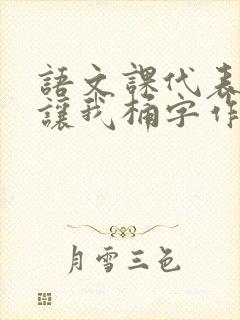 語文課代表
讓我桶字作
月雪三色